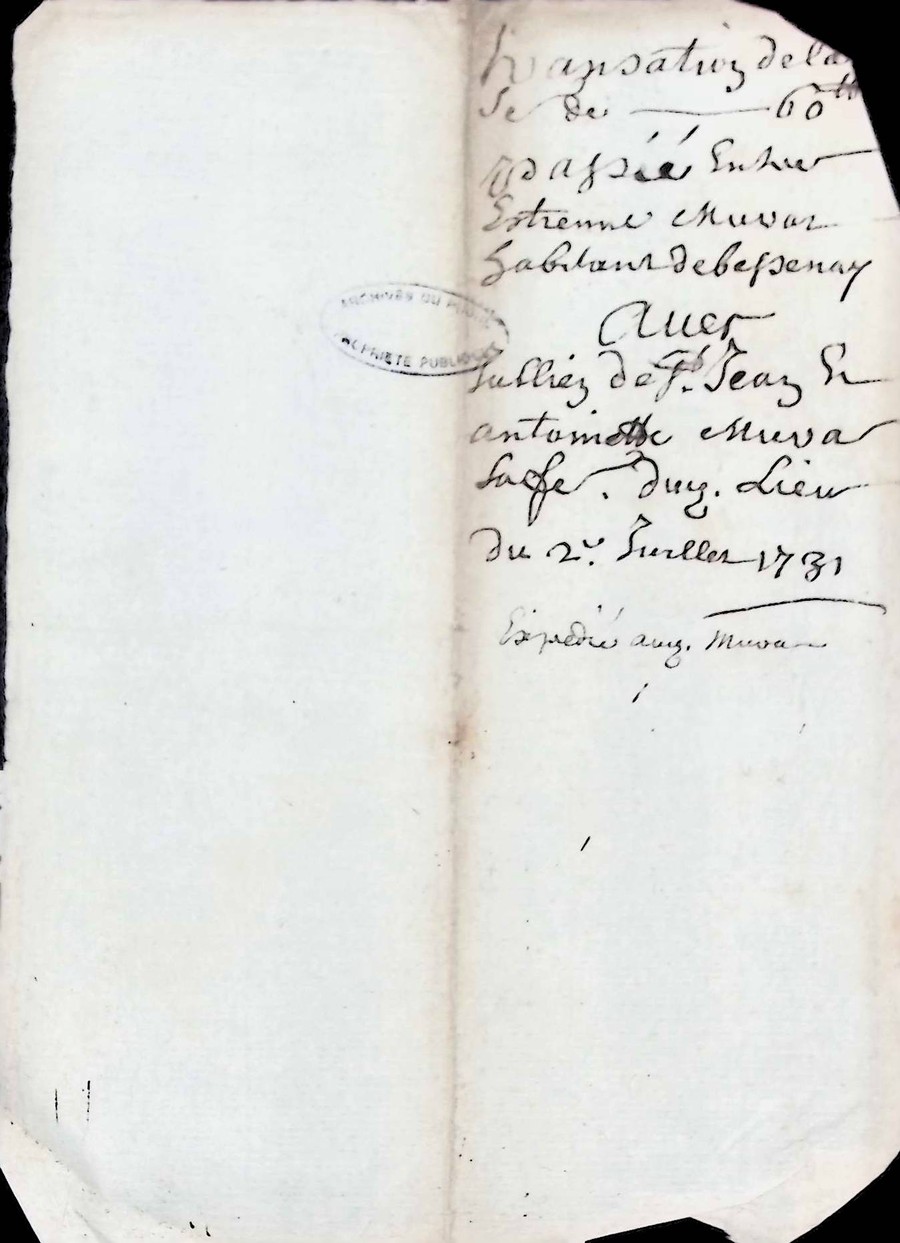 transation de la
se de — 60tt
passéé Entre
Estienne Muvar
habitant de bessenay
Auec
Jullien de St. Jean Et
antoinette Muva
sa fe. dud. Lieu
du 2e. Juillet 1731
Expedié aud. Muvar
ARCHIVES DU
PROPRIÉTÉ PUBLIQUE